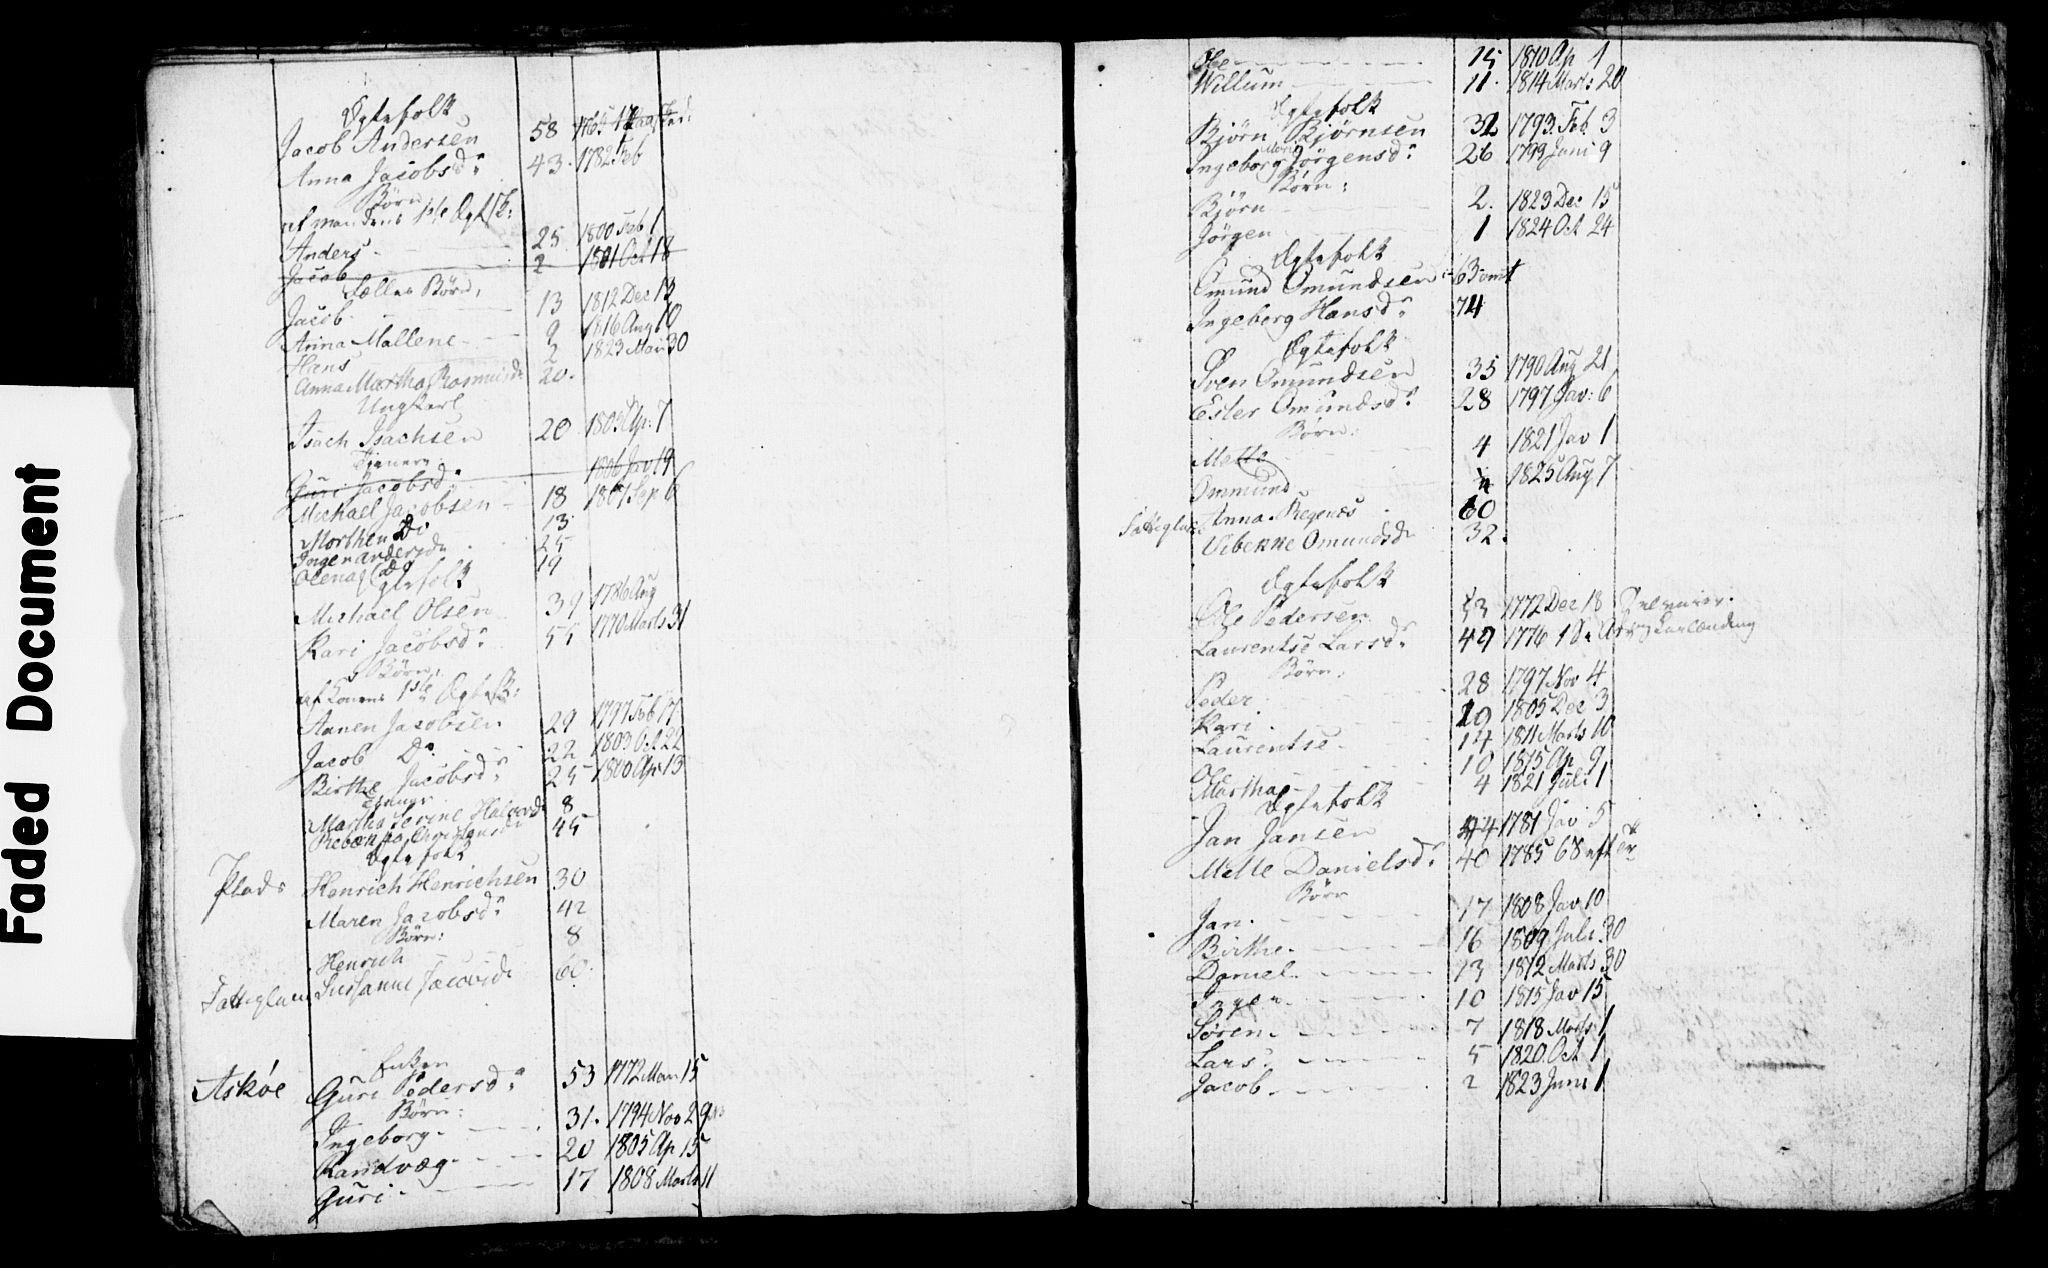 Faded Document
Ægtefolk
Jacob Andersen 58
Anna Jacobsd: 43. 1782 Feb
Børn
af mandens 1ste Ægtsk:
Anders 25 1800 Feb 1
Jacob 2 1801 Oct 18
Fælles Børn,
Jacob 13 1812 Dec 13
Anna Mallene 9 1816 Aug 10
Hans 2 1823 Mai 30
Anna Martha Rasmusd 20.
Ungkerl
Isach Isachsen 20 1805 Ap: 7
Tjenere:
Guri Jacobsd: 1806 Jav 14
Michael Jacobsen 18 1807 Sep 6
Morthen Do 13
Ingen Andersd 25
Olena Do 19
Ægtefolk
Michael Olsen 39 1786 Aug
Kari Jacobsd: 55 1770 Marts 31
Børn:
af Konens 1ste Ægtsk:
Aanen Jacobsen 29 1797 Feb 17
Jacob Do 22 1803 Oct 22
Birthe Jacobsd: 25 1800 Ap: 13
Tjener
Martha Serine Halvord 8
Rebækka 45
Ægtefolk
Plads Henrich Henrichsen 30
Maren Jacobsd: 42
Børn:
Henrich 8
Fattiglem Susanne Jacobsd 60.
Enken
Askøe Guri Pedersd: 53 1772 Mar: 15
Børn:
Ingeborg 31. 1794 Nov 29
Randvæg 20 1805 Ap 15
Guri 17 1808 Marts 11
Ole 15 1810 Ap 1
Willum 11. 1814 Marts 20
Ægtefolk
Bjørn Bjørnsen 32 1793. Feb. 3
Ingeborg Marie Jørgensd: 26 1799 Juni 9
Børn:
Bjørn 2. 1823 Dec 15
Jørgen 1 1824 Oct 24
Ægtefolk
Omund Omundsen 63 omt
Ingeborg Hansd: 74
Ægtefolk
Sven Omundsen 35 1790 Aug 21
Ester Omundsd: 28 1797 Jav: 6
Børn:
Mette 4 1821 Jav 1
Ommund 1825 Aug 7
Fattiglem Anna Regenes 60
Vibekke Omundsd 32.
Ægtefolk
Ole Pedersen 53 1772 Dec 18
Laurentse Larsd: 49 1776 1 S:
Børn:
Peder 28 1797 Nov 4
Kari 19 1805 Dec 3
Laurentse 14 1811 Marts 10
Ole 10 1815 Ap 9
Martha 4 1821 Juli 1
Ægtefolk
Jan Jansen 44 1781 Jav 5
Mette Danielsd: 40 1785 6 S eft
Børn
Jan 17 1808 Jav 10
Birthe 16 1809 Juli 30
Daniel 13 1812 Marts 30
Ingen 10 1815 Jav 15
Søren 7 1818 Marts 1
Lars 5 1820. Oct 1
Jacob 2 1823 Juni 1